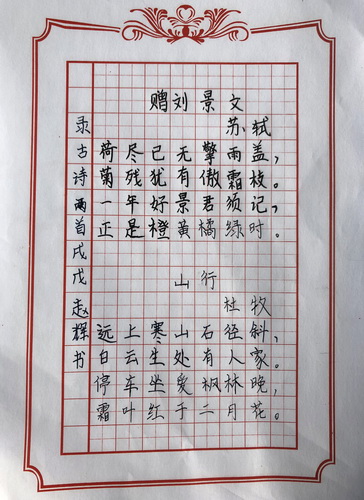 赠刘景文
苏轼
荷尽已无擎雨盖，
菊残犹有傲霜枝。
一年好景君须记，
正是橙黄橘绿时。
山行
杜牧
远上寒山石径斜，
白云生处有人家。
停车坐爱枫林晚，
霜叶红于二月花。
录古诗两首戌戊赵辉书